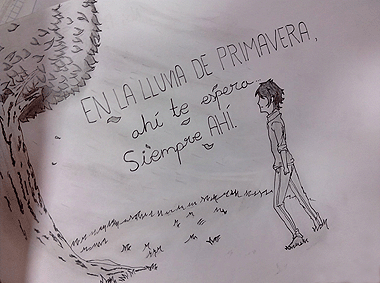 EN LA LLUVIA DE PRIMAVERA,
ahí te espera...
Siempre AHÍ.